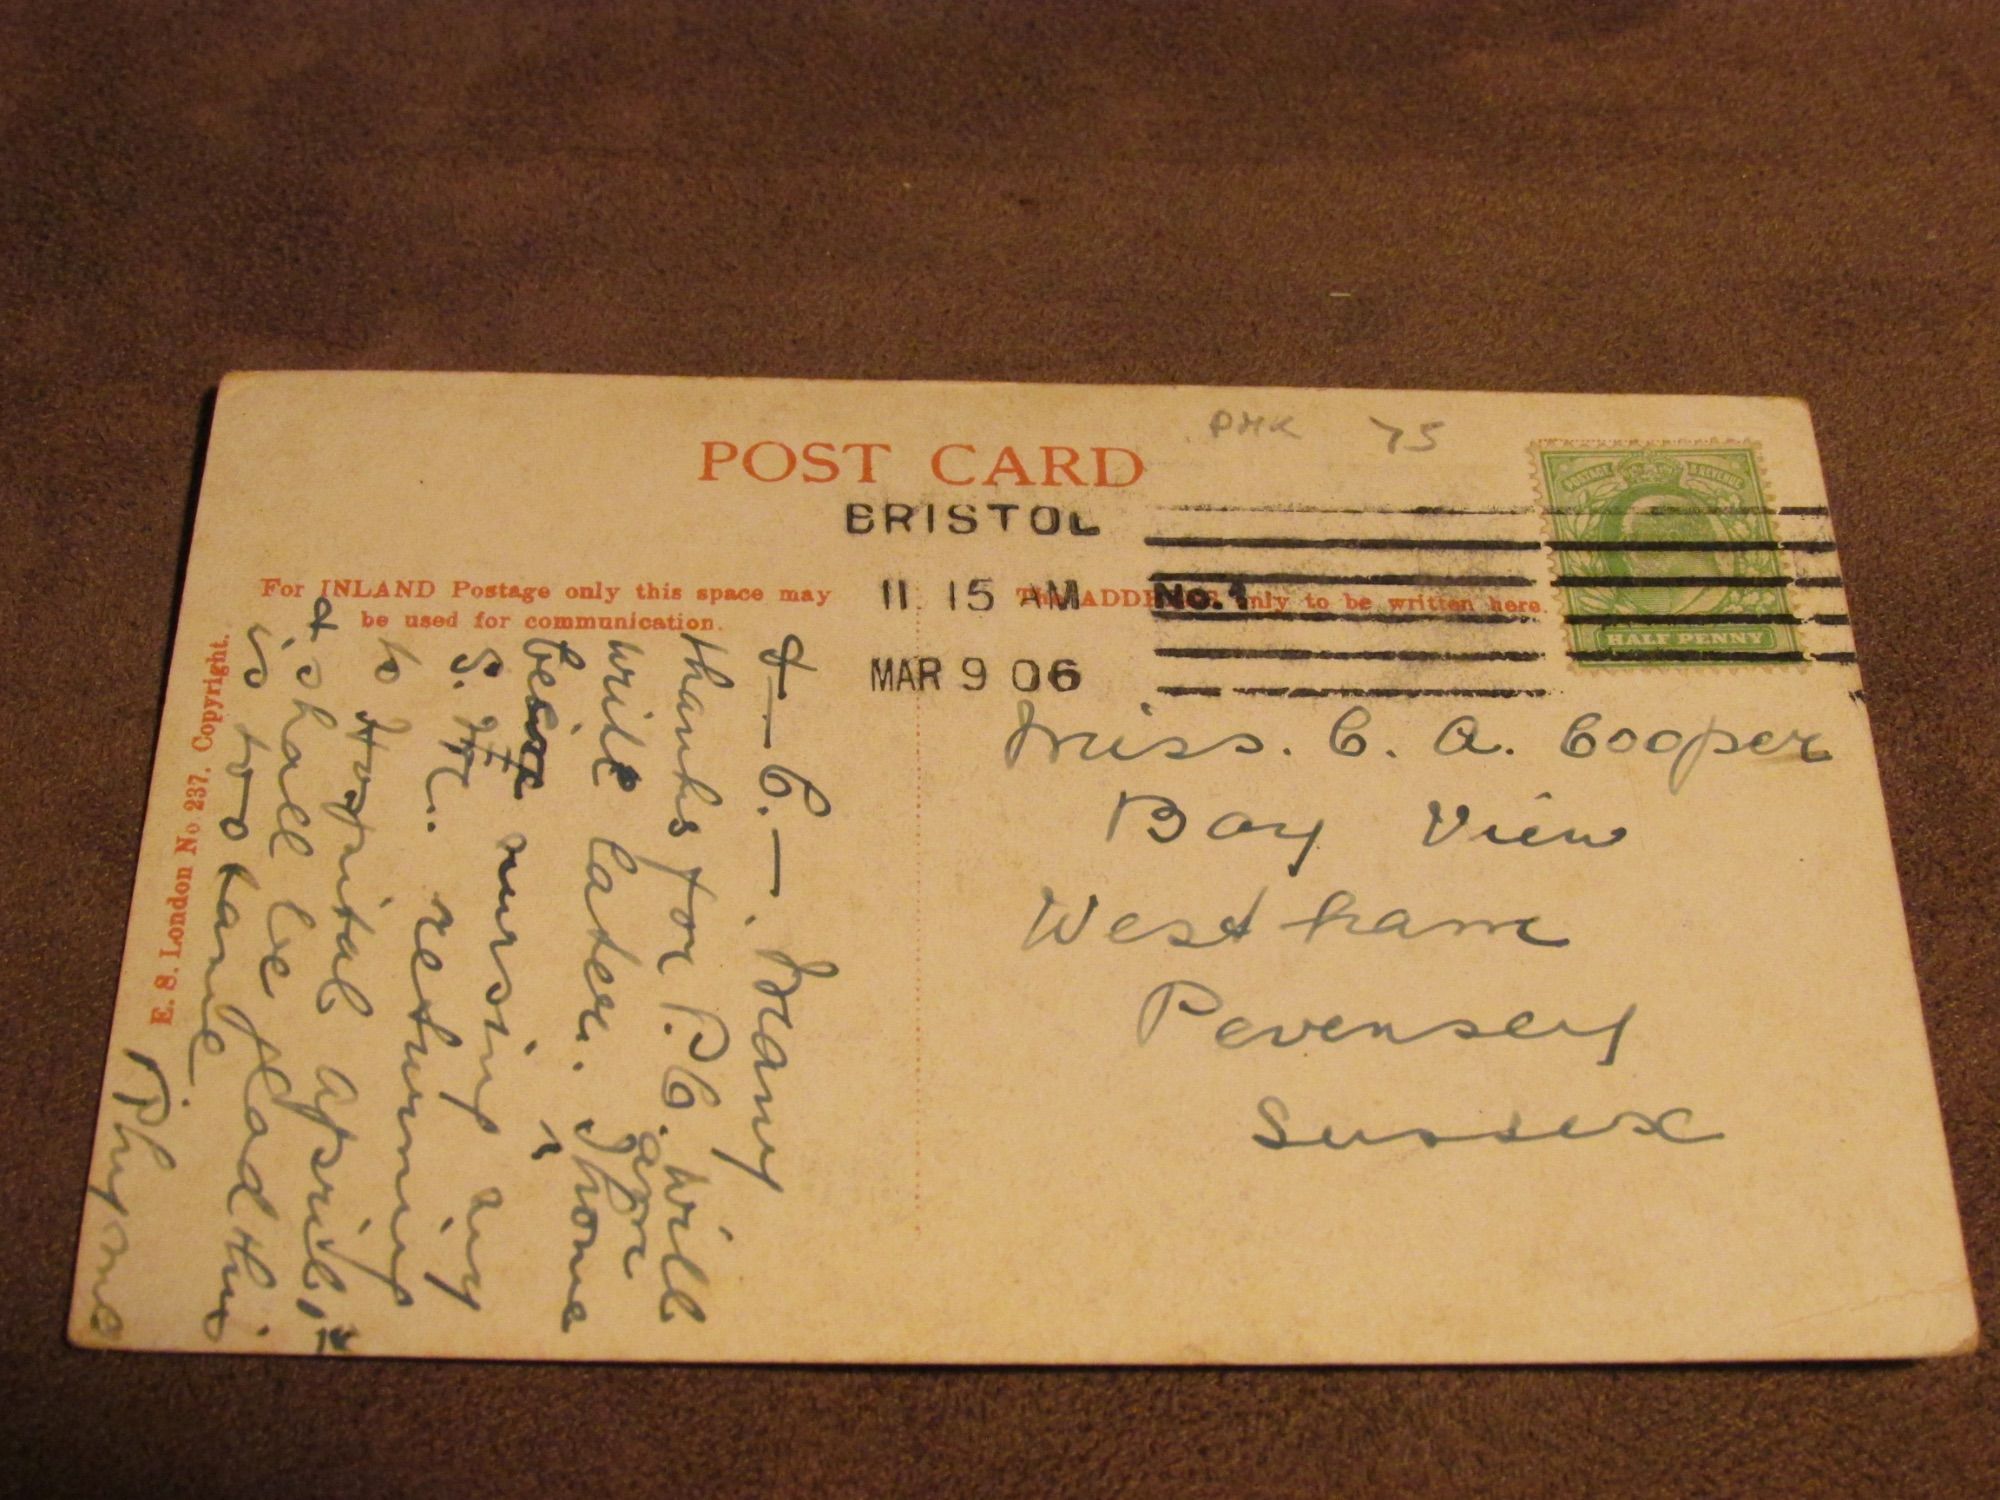 PMK 75
POST CARD
BRISTOL
11 15 AM No.1
MAR 9 06
POSTAGE & REVENUE
HALF PENNY
For INLAND Postage only this space may
be used for communication.
The ADDRESS only to be written here.
E. S. London No 237. Copyright.
Many
thanks for P.C. will
write later. I am
nursing my
S. returning
to Hospital April 1st
& shall be glad this
is too tame
Phyome
Miss. C. A. Cooper
Bay View
Westham
Pevensey
Sussex